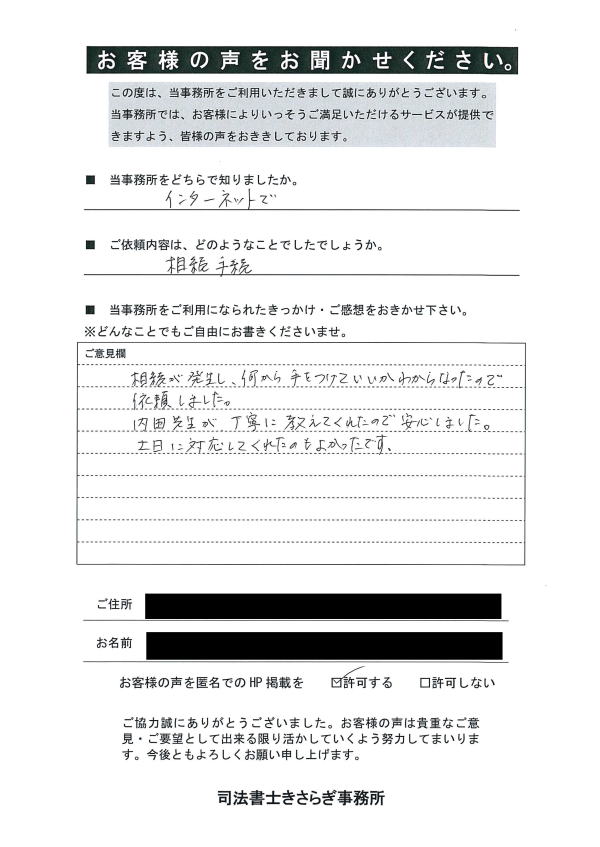 お客様の声をお聞かせください。
この度は、当事務所をご利用いただきまして誠にありがとうございます。
当事務所では、お客様によりいっそうご満足いただけるサービスが提供で
きますよう、皆様の声をおききしております。
■ 当事務所をどちらで知りましたか。
インターネットで
■ ご依頼内容は、どのようなことでしたでしょうか。
相続手続
■ 当事務所をご利用になられたきっかけ・ご感想をおきかせ下さい。
※どんなことでもご自由にお書きくださいませ。
ご意見欄
相続が発生し、何から手をつけていいかわからなったので
依頼しました。
内田先生が丁寧に教えてくれたので安心しました。
土日に対応してくれたのもよかったです。
ご住所
お名前
お客様の声を匿名でのHP掲載を ☑許可する □許可しない
ご協力誠にありがとうございました。お客様の声は貴重なご意
見・ご要望として出来る限り活かしていくよう努力してまいりま
す。今後ともよろしくお願い申し上げます。
司法書士きさらぎ事務所